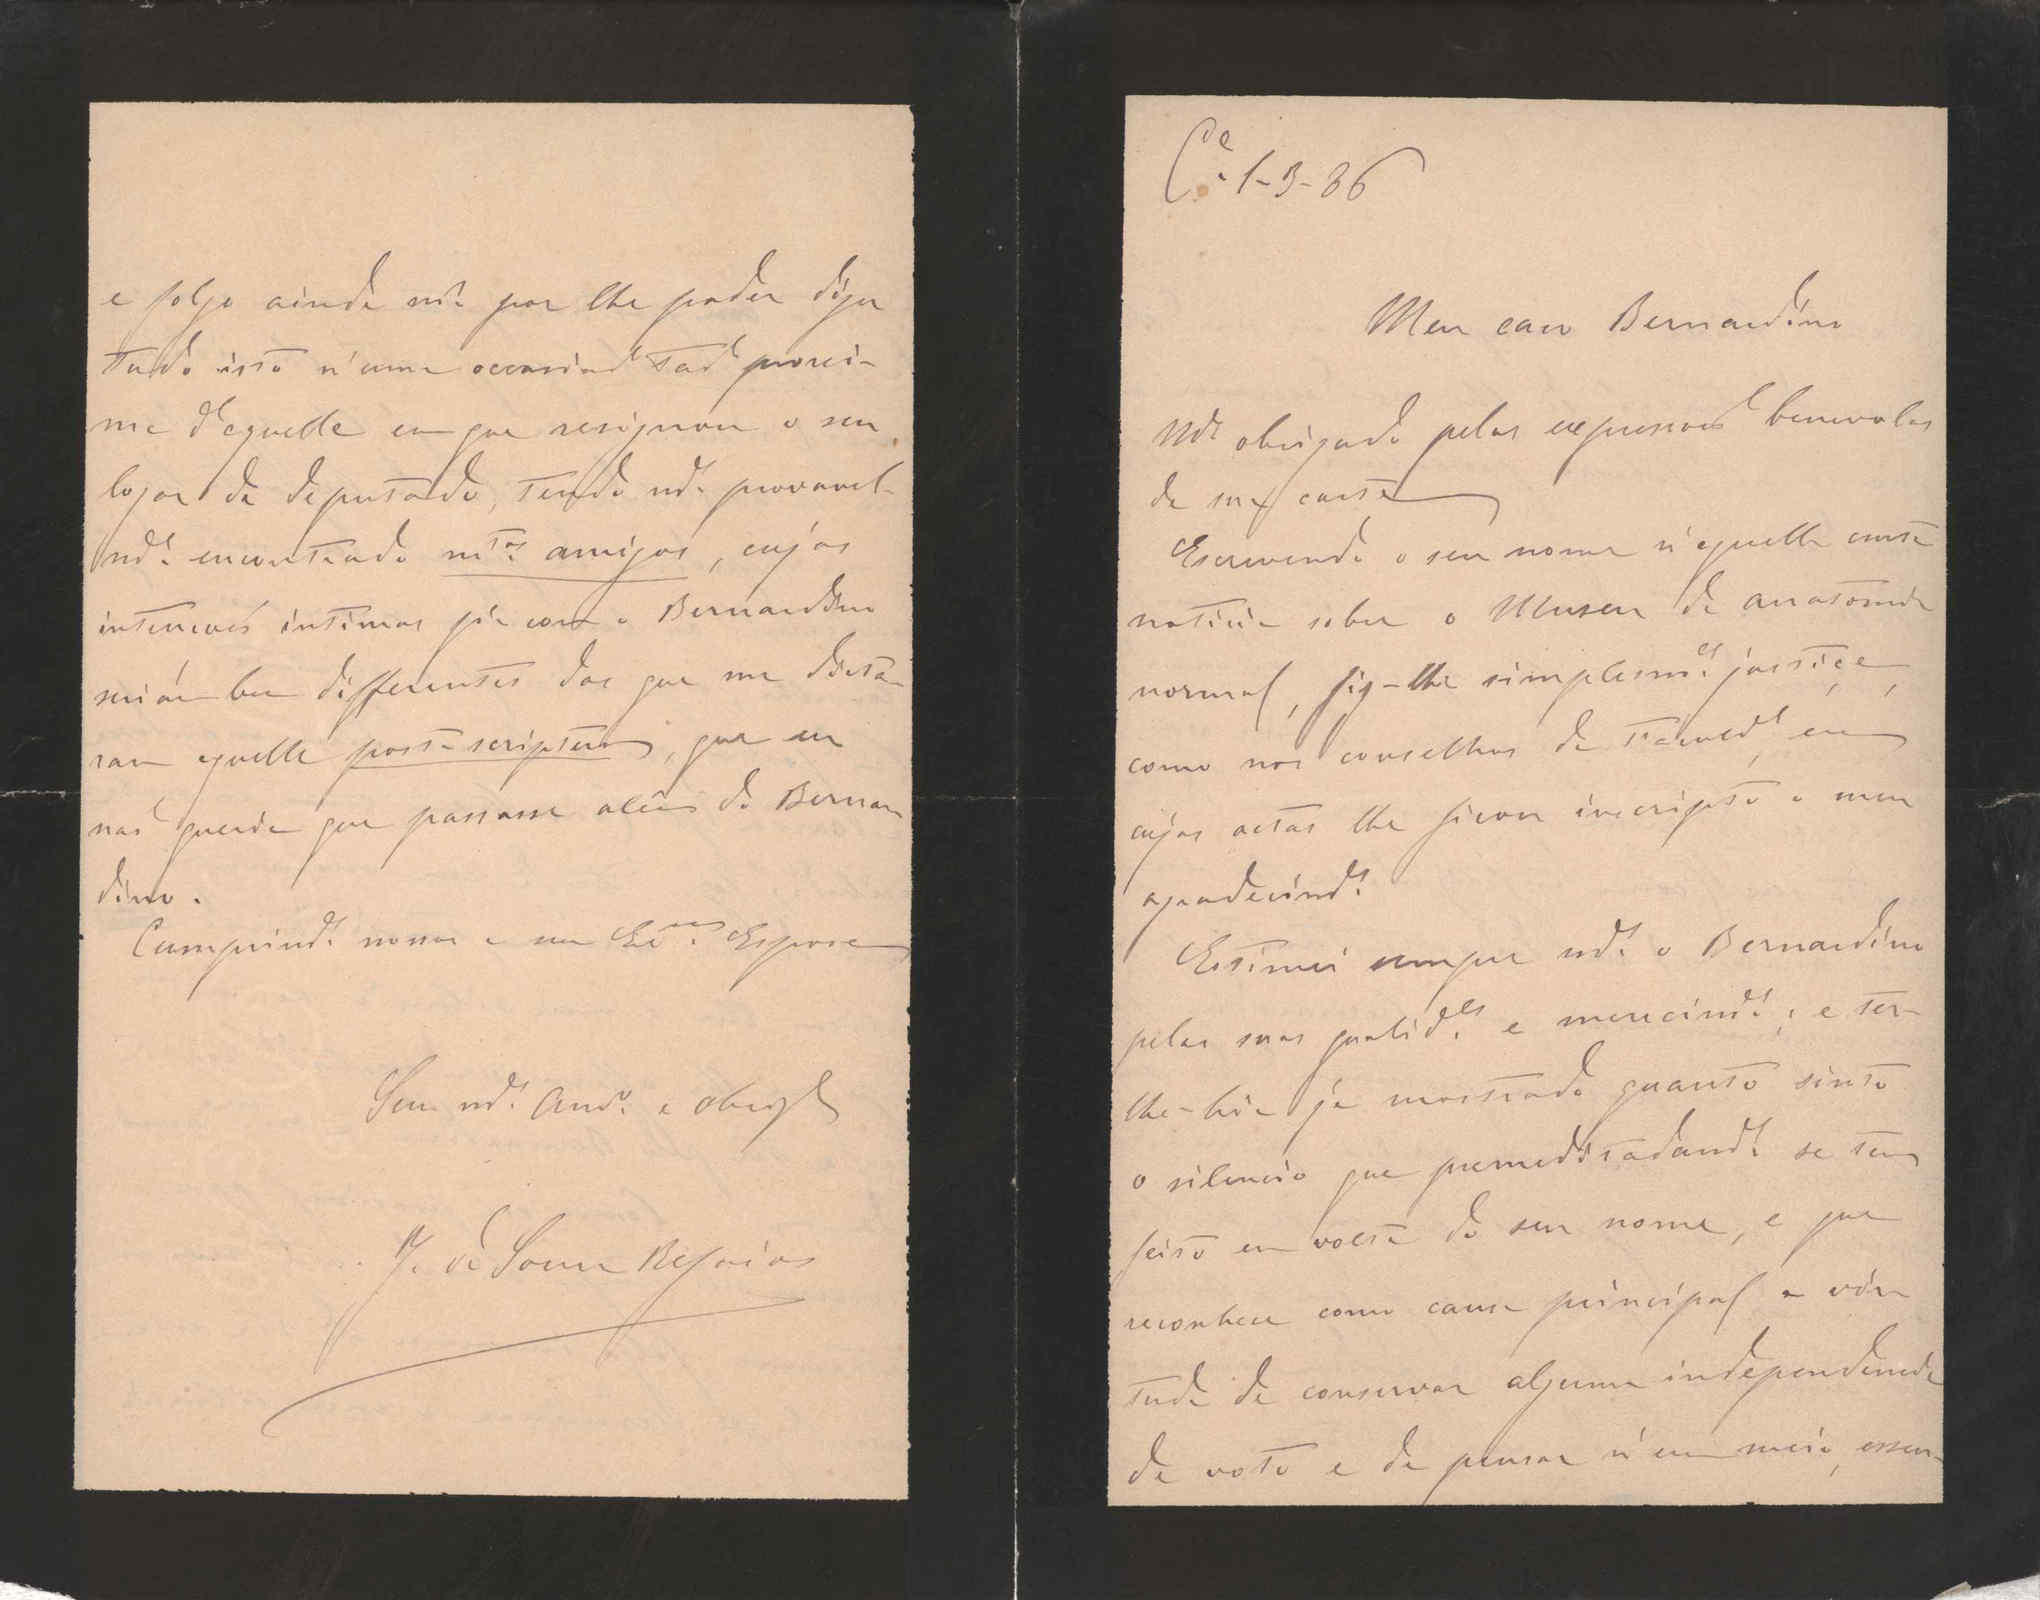 Cª 1-3-86
Meu caro Bernardino
Mtº obrigado pelas expressões benevolas
da sua carta
Escrevendo o seu nome n'aquella curta
noticia sobre o Museu de anatomia
normal, fiz-lhe simplesmᵗᵉ justiça,
como nos conselhos da Faculdᵉ, em
cujas actas lhe ficou inscripto o meu
agradecimᵗº
Estimei sempre mtº o Bernardino
pelas suas qualidᵉˢ e merecimᵗºˢ; e ter-
lhe-hia já mostrado quanto sinto
o silencio que premeditadamᵗᵉ se tem
feito em volta do seu nome, e que
reconhece como causa principal a
de conservar alguma independencia
de voto e de pensar n'um meio, essen-
e folgo ainda mais por lhe poder dizer
tudo isto n'uma occasião tão proxi-
ma d'aquella em que resignou o seu
logar de deputado, tendo mtº provavel-
mᵗᵉ encontrado mᵗºˢ amigos, cujos
interesses intimos p'ra com o Bernardino
seriam bem differentes dos que me dicta-
ram aquelle post-scriptum, que eu
não queria que passasse além do Bernar-
dino.
Cumprimᵗºˢ nossos a sua Exᵐᵃ Esposa
Seu mtº Amº e obrigº
J. de Sousa Refoios